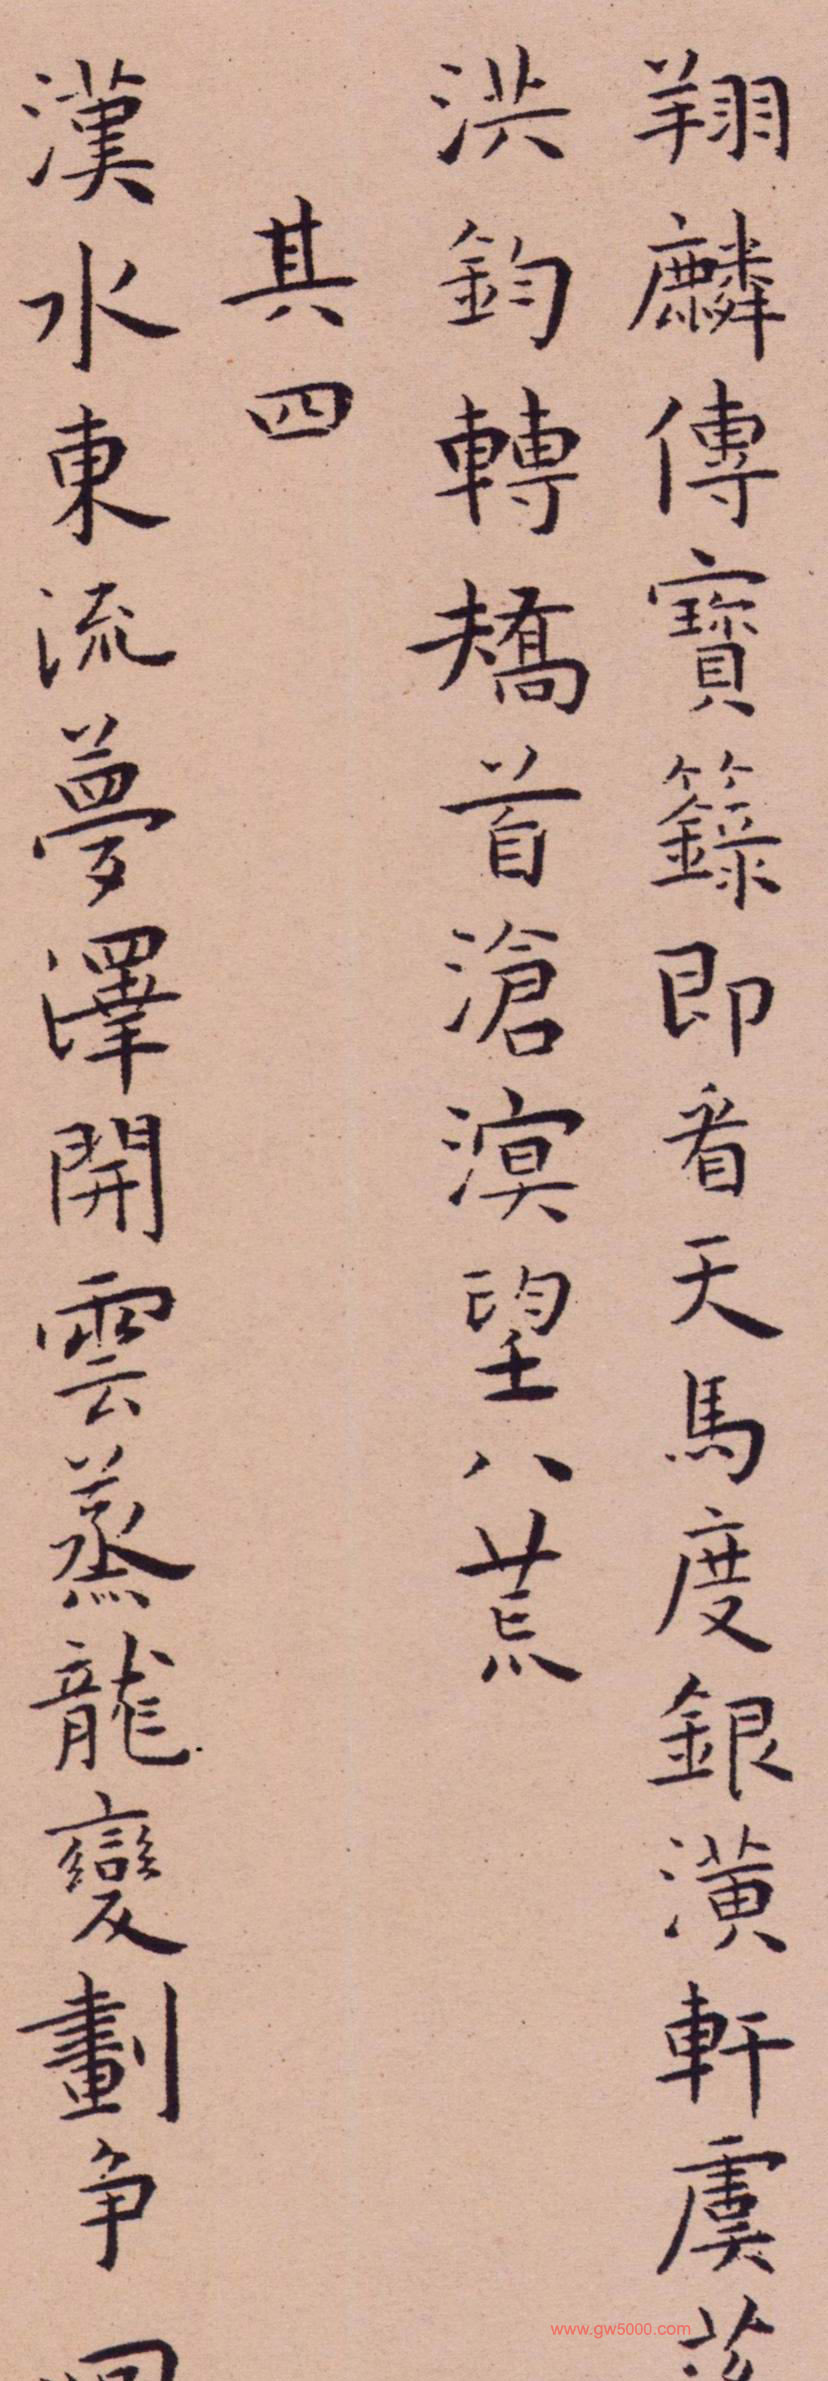 翔麟傳寶籙即看天馬度銀潢軒虞
洪鈞轉矯首滄溟望八荒
其四
漢水東流夢澤開雲蒸龍變劃争
www.gw5000.com